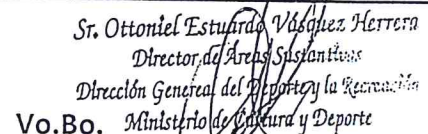 Sr. Ottoniel Estuardo Vásquez Herrera
Director de Áreas Sustantivas
Dirección General del Deporte y la Recreación
Vo.Bo. Ministerio de Cultura y Deporte